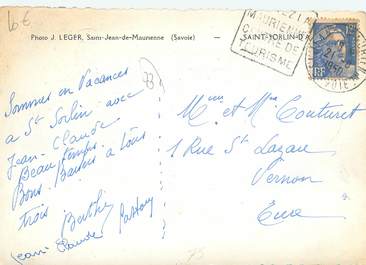 10€
Photo J. LEGER, Saint-Jean-de-Maurienne (Savoie) — SAINT-SORLIN-D
MAURIENNE
CENTRE DE
TOURISME
73
Sommes en Vacances
a St Sorlin avec
Jean-Claude
Beau temps.
Bons Baisers à tous
trois
Berthe
Jean Claude
Mme et Mr Couturet
1 Rue St Lazare
Vernon
Eure
75